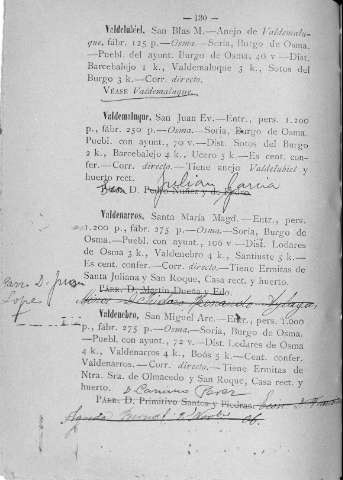 — 130 —
Valdelubiel. San Blas M.—Anejo de Valdemalu-
que, fábr. 125 p.—Osma.—Soria, Burgo de Osma.
—Puebl. del ayunt. Burgo de Osma, 40 v—Dist.
Barcebalejo 1 k., Valdemaluque 3 k., Sotos del
Burgo 3 k.—Corr. directo.
VÉASE Valdemaluque.
Valdemaluque, San Juan Ev.—Entr., pers. 1.200
p., fábr. 250 p.—Osma.—Soria, Burgo de Osma.
Puebl. con ayunt., 70 v.—Dist. Sotos del Burgo
2 k., Barcebalejo 4 k., Ucero 3 k.—Es cent. con-
fer.—Corr. directo.—Tiene anejo Valdelubiel y
huerto rect.
Julián García
D. Pedro
Valdenarros. Santa María Magd.—Entr., pers.
1.200 p., fábr. 275 p.—Osma.—Soria, Burgo de
Osma.—Puebl. con ayunt., 100 v—Dist. Lodares
de Osma 3 k., Valdenebro 4 k., Santiuste 5 k.—
Es cent. confer.—Corr. directo.—Tiene Ermitas de
Santa Juliana y San Roque, Casa rect. y huerto.
PÁRR. D. Martín
D. Juan
López
Valdenebro, San Miguel Arc.—Entr., pers. 1.000
p., fábr. 275 p.—Osma.—Soria, Burgo de Osma.
—Puebl. con ayunt., 72 v.—Dist. Lodares de Osma
4 k., Valdenarros 4 k., Boós 5 k.—Cent. confer.
Valdenarros.—Corr. directo.—Tiene Ermitas de
Ntra. Sra. de Olmacedo y San Roque, Casa rect. y
huerto.
PÁRR. D. Primitivo Santos y Piedras.